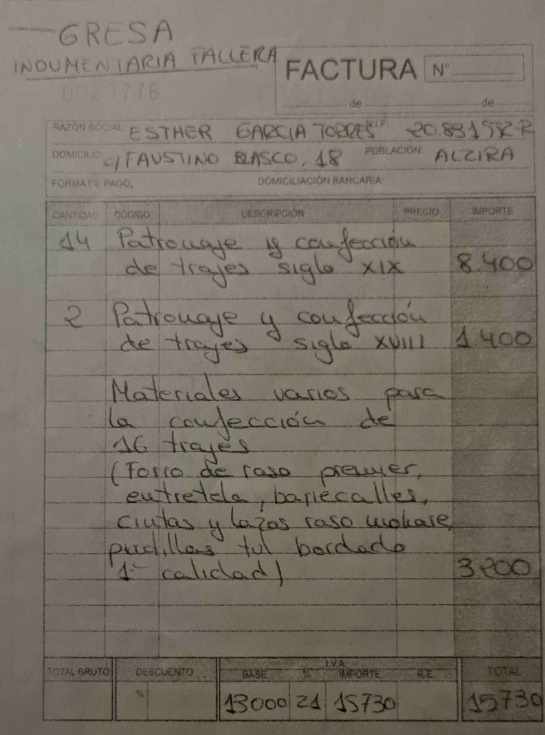 GRESA
INDUMENTARIA FALLERA
FACTURA Nº
de de
RAZÓN SOCIAL ESTHER GARCIA TORRES
DOMICILIO C/ FAUSTINO BLASCO, 18 POBLACIÓN ALZIRA
FORMATO PAGO, DOMICILIACIÓN BANCARIA
CANTIDAD CÓDIGO DESCRIPCIÓN PRECIO IMPORTE
14 Patronaje y confección
de trajes siglo XIX 8.400
2 Patronaje y confección
de trajes siglo XVIII 1.400
Materiales varios para
la confección de
16 trajes
(Forro de raso premyer,
entretela, barrecalles,
cintas y lazos raso mohare,
puntillas tul bordado
1ª calidad) 3.200
I.V.A.
TOTAL BRUTO DESCUENTO BASE % IMPORTE R.E. TOTAL
% 13000 21 15730 15730